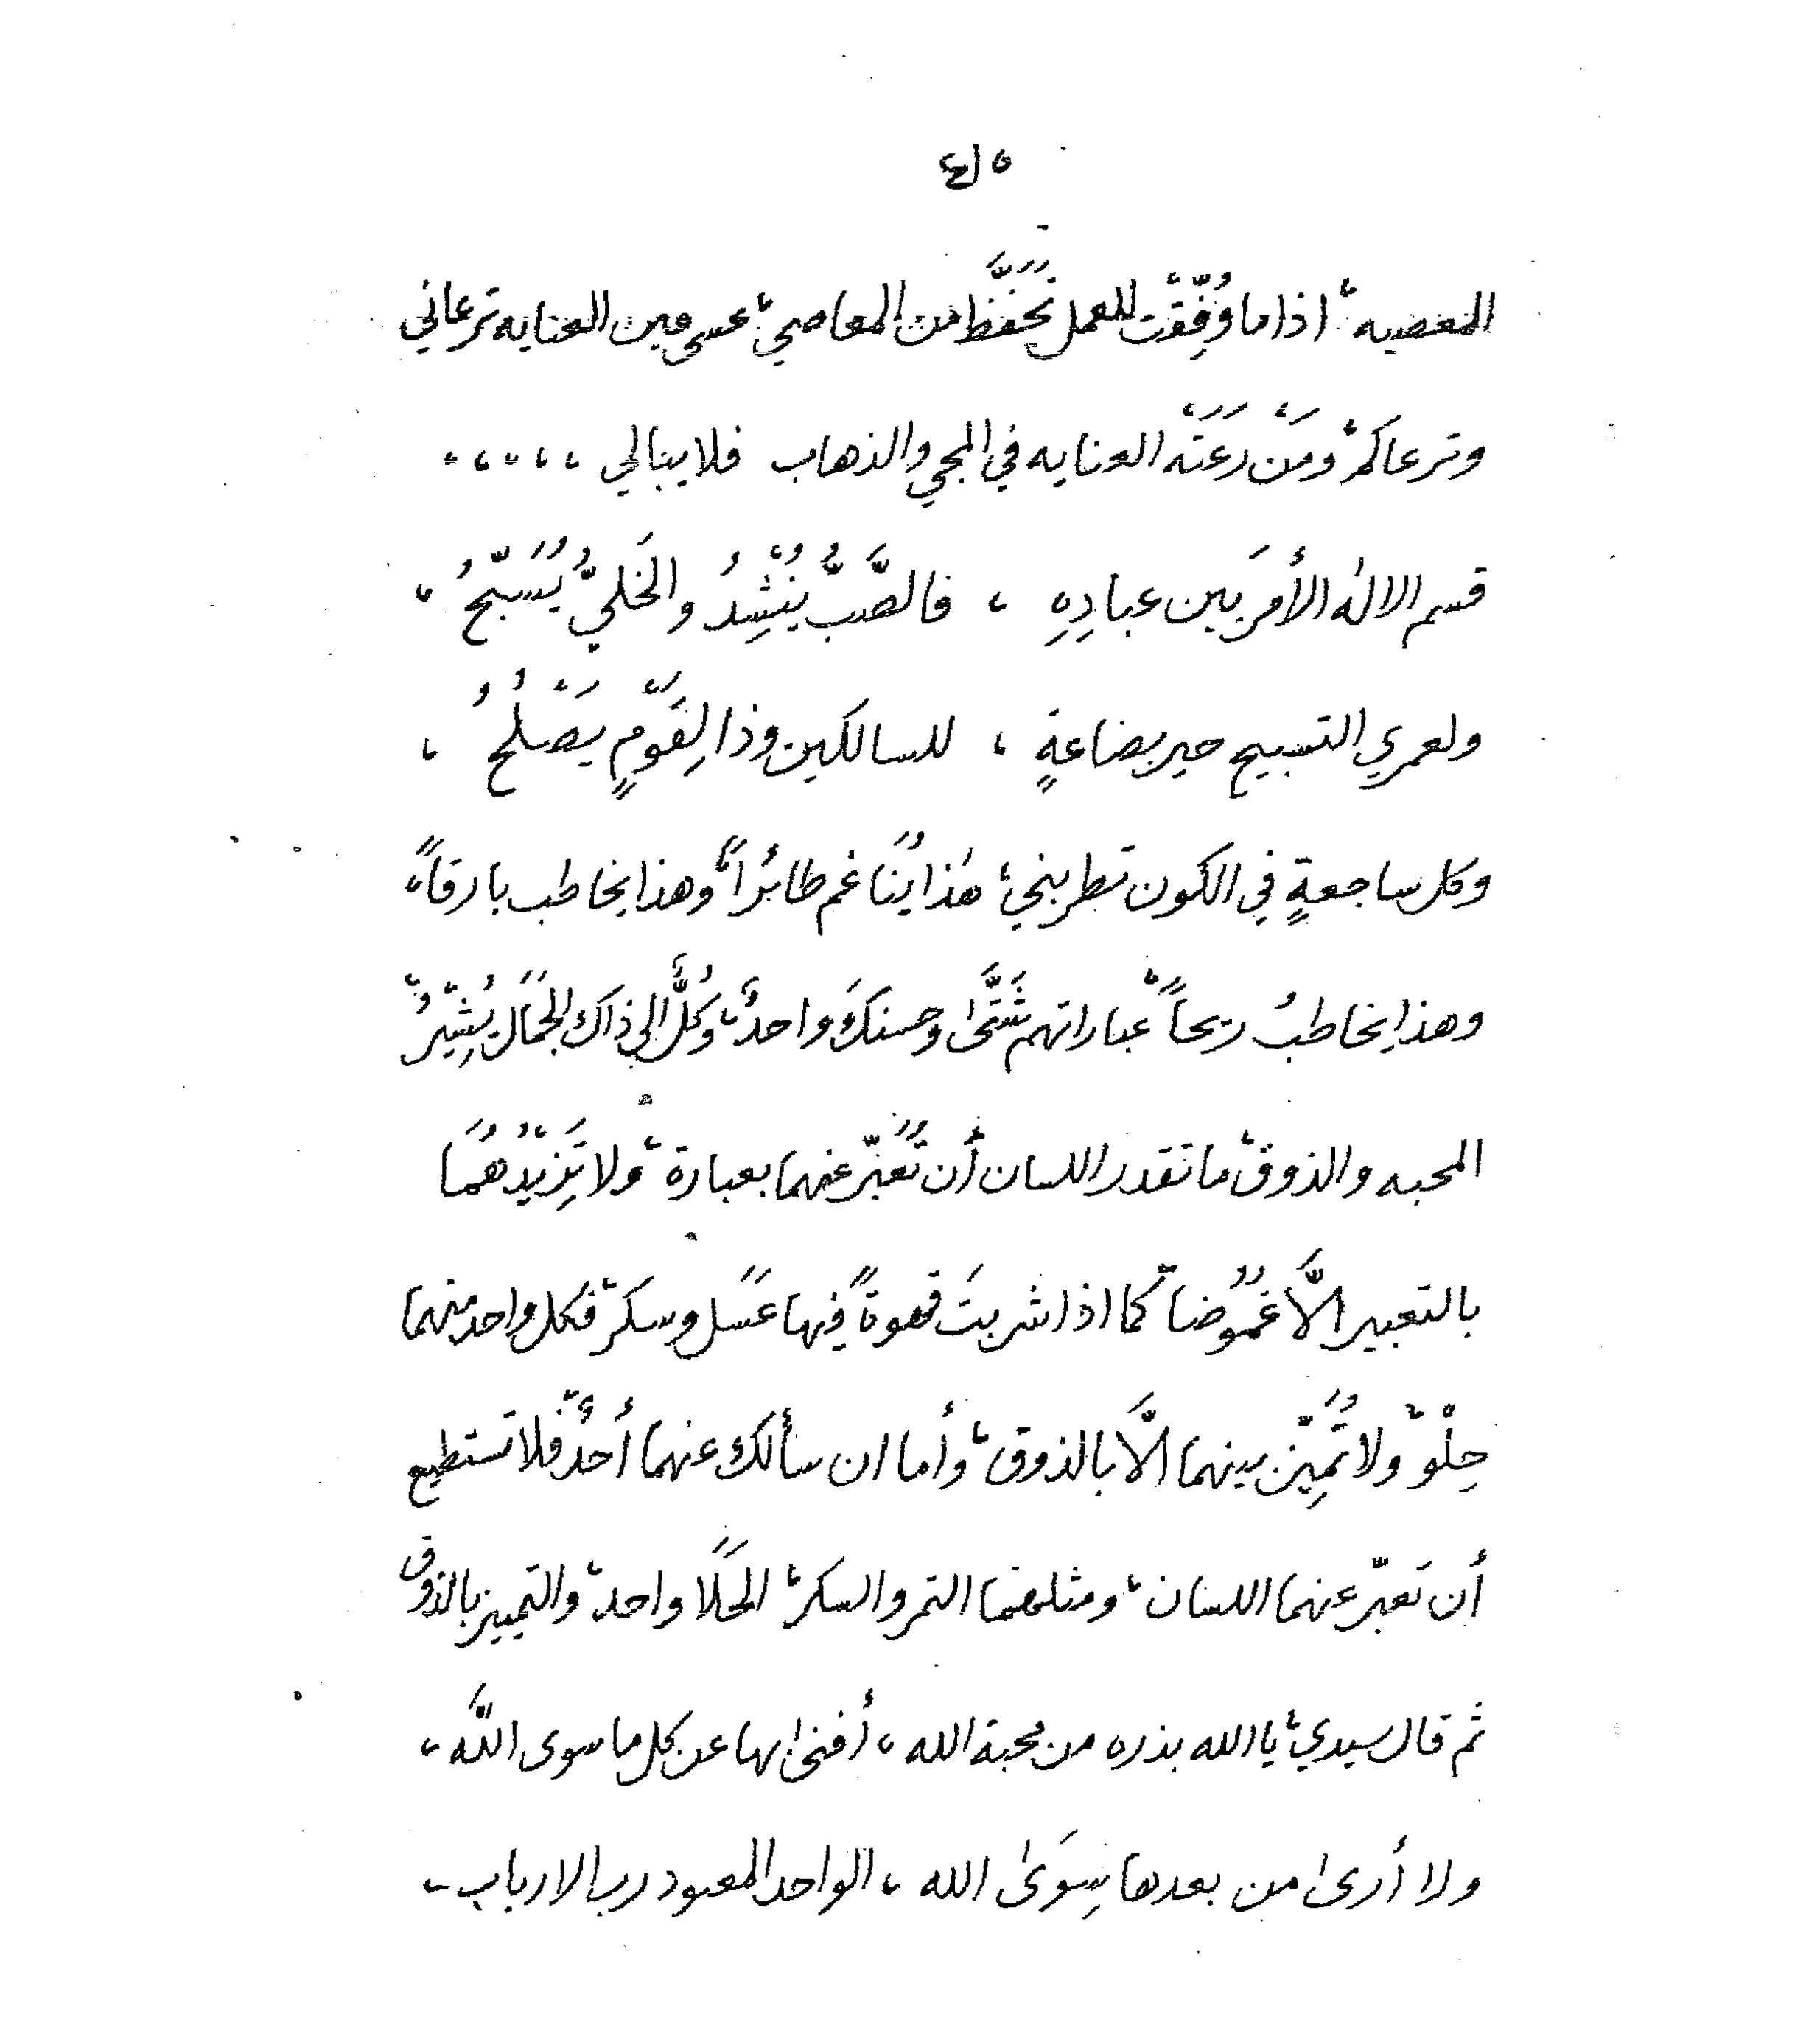 المعصيه، اذا ما وُفِّقْت للعمل تَحَفَّظ من المعاصي، عسى عين العنايه ترعاني
وترعاكم، ومَنْ رَعَتَه العنايه في المجي والذهاب فلا يبالي ،،،،،
قسم الاله الأمرَ بين عبادِهِ ، فالصَّبُّ يُنْشِدُ والخَليُّ يُسَبّحُ ،
ولعمري التسبيح خير بضاعةٍ ، للسالكين وذا لِقَوْمٍ يَصْلُحُ ،
وكل ساجعةٍ في الكون تطربني، هٰذا يُنَاغم طائراً، وهذا يخاطب بارقاً،
وهذا يخاطبُ ريحاً، عباراتهم شَتَّىٰ وحسنكَ واحدٌ، وكُلٌّ الى ذاك الجَمَال يُشِيْرُ،
المحبه والذوق، ما تقدر اللسان أن تُعَبّر عنهما بعبارة، ولا تَزِيْدُهُمَا
بالتعبير الَّا غُمُوُضاً، كما اذا شربتَ قهوةً فيها عَسَل وسكر، فكل واحد منهما
حِلْو، ولا تُمَيِّز بينهما الَّا بالذوق، وأما ان سألك عنهما أحدٌ، فلا تستطيع
أن تعبّر عنهما اللسان، ومثلهما التمر والسكر، الحَلَا واحد، والتمييز بالذوق
ثم قال سيدي، يا الله بذره من محبة الله ، أفنىٰ بها عن كل ما سوى اللَّه ،
ولا أرىٰ من بعدها سِوَىٰ الله ، الواحد المعبود رب الارباب ،